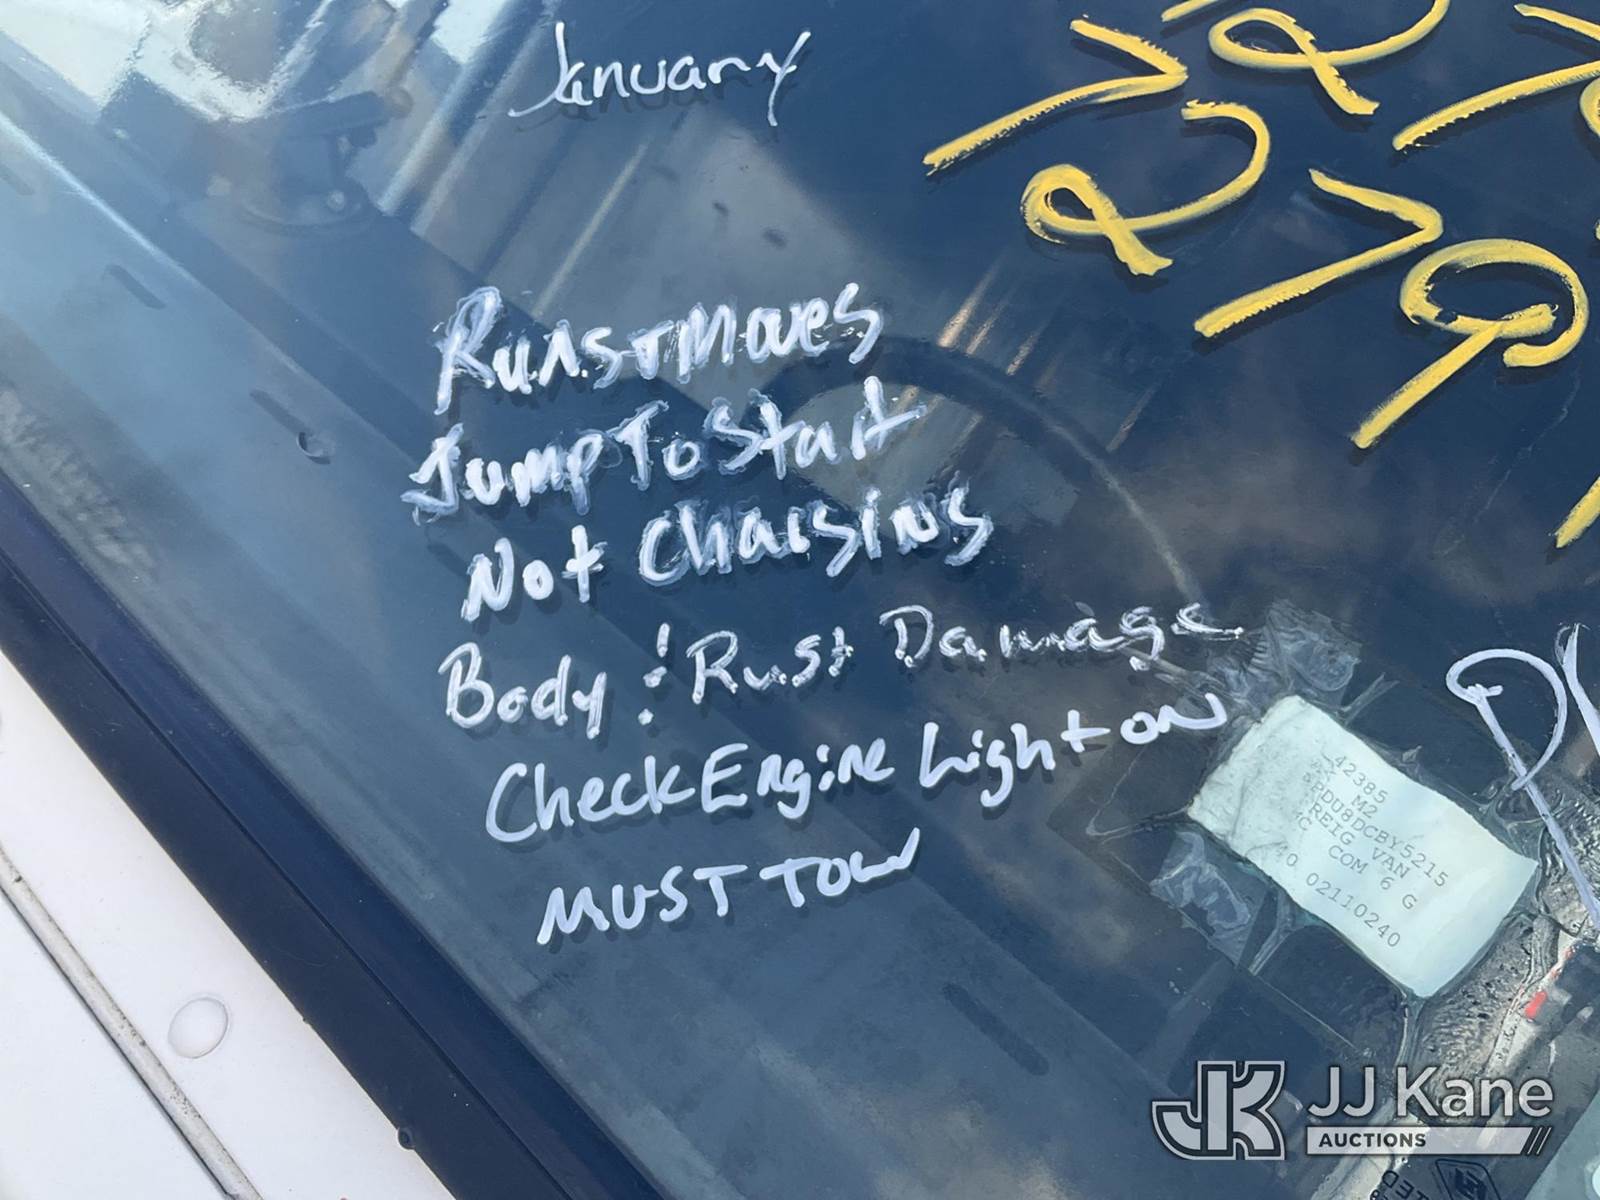 January
Runs & Moves
Jump To Start
Not Charging
Body & Rust Damage
Check Engine Light on
MUST TOW
42385
M2
PDU8DCBY5215
REIG VAN G
COM 6
02110240
JJ Kane
AUCTIONS